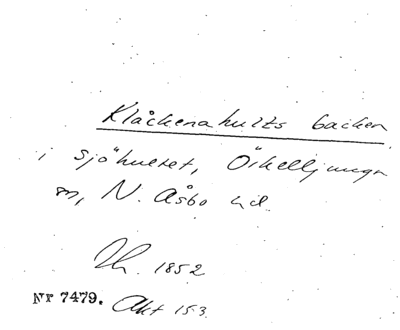 Klåckenahults backen
i sjöhultet, Örkelljunga
sn, N. Åsbo hd.
1852
Nr 7479. Akt 153